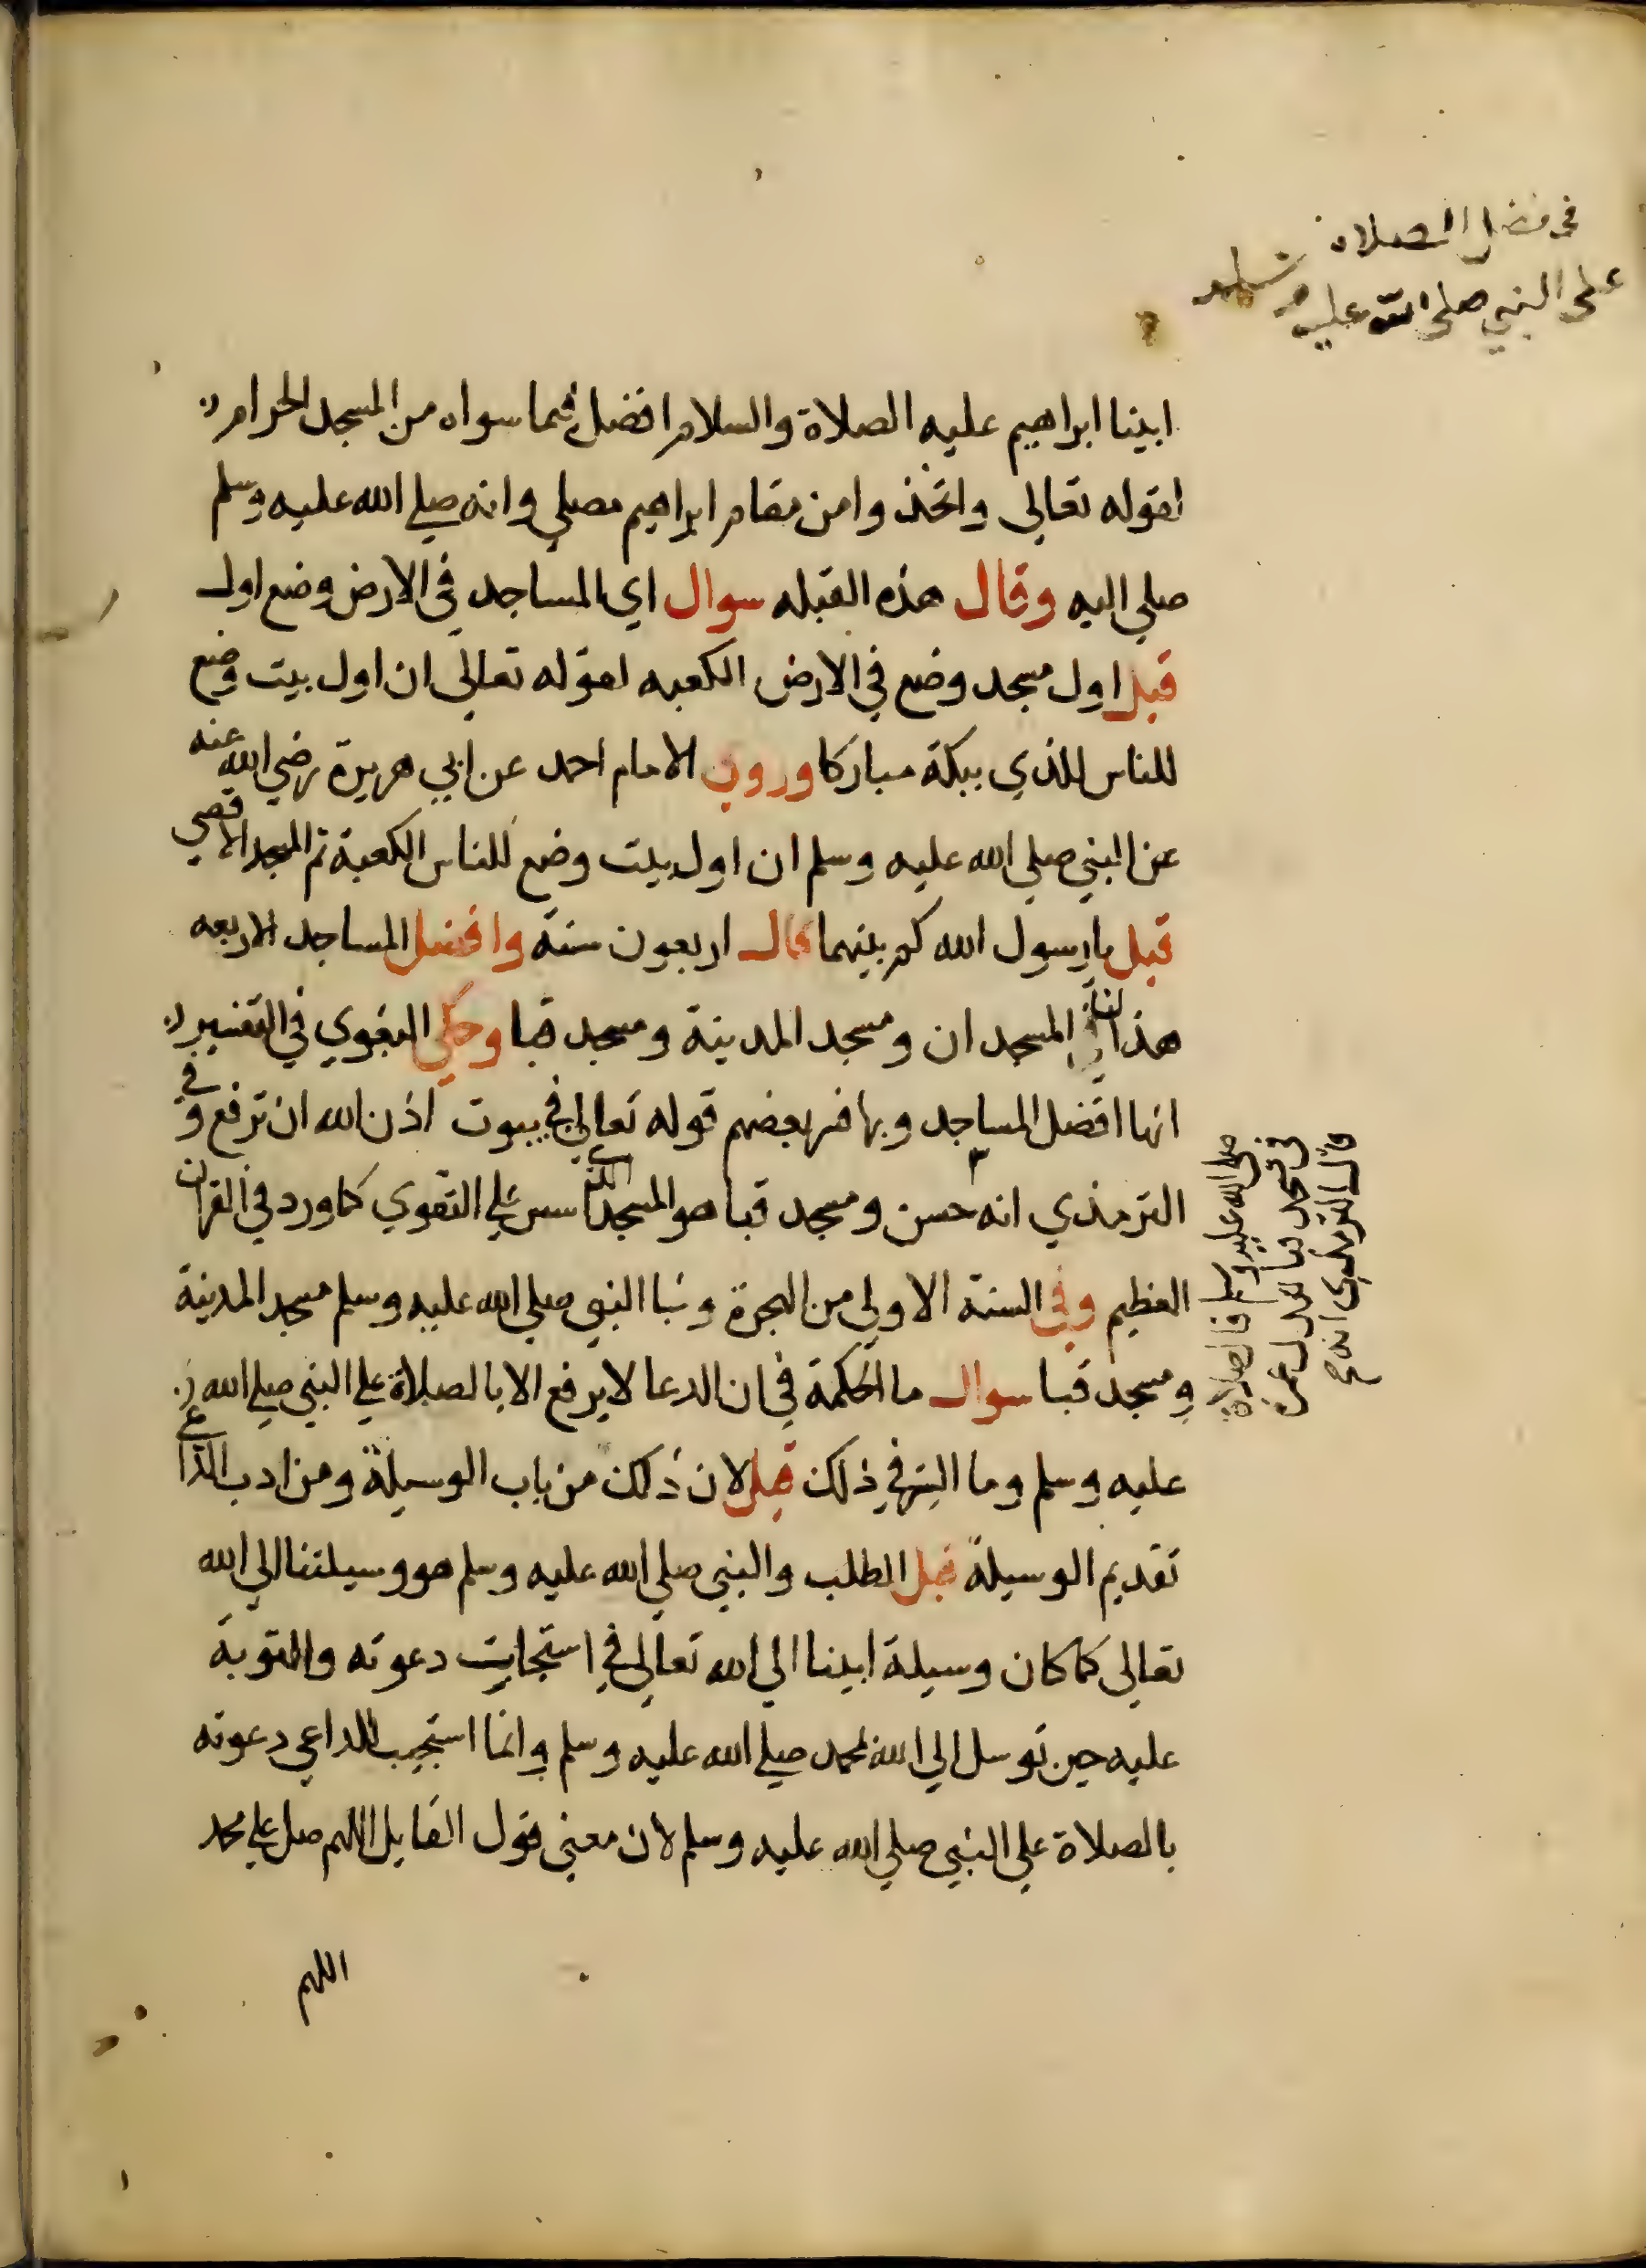 في فضل الصلاة
على النبي صلى الله عليه وسلم
ابينا ابراهيم عليه الصلاة والسلام افضل مما سواه من المسجد الحرام
لقوله تعالى واتخذوا من مقام ابراهيم مصلي وانه صلي الله عليه وسلم
صلي اليه وقال هذه القبله سوال اي المساجد في الارض وضع اول
قيل اول مسجد وضع في الارض الكعبه لقوله تعالي ان اول بيت وضع
للناس للذي ببكة مباركا وروي الامام احمد عن ابي هريرة رضي الله عنه
عن النبي صلي الله عليه وسلم ان اول بيت وضع للناس الكعبة ثم المسجد الاقصي
قيل يا رسول الله كم بينهما قال اربعون سنة وافضل المساجد الاربعه
هذان المسجدان ومسجد المدينة ومسجد قبا وحكي البغوي في التفسير
انها افضل المساجد وبها فسر بعضهم قوله تعالي في بيوت اذن الله ان ترفع وفي
الترمذي انه حسن ومسجد قبا هو المسجد الذي اسس علي التقوي كما ورد في القران
العظيم وفي السنة الاولي من الهجرة وبنا النبي صلي الله عليه وسلم مسجد المدينة
ومسجد قبا سوال ما الحكمة في ان الدعا لا يرفع الا بالصلاة علي النبي صلي الله
عليه وسلم وما السر في ذلك قيل لان ذلك من باب الوسيلة ومن ادب الداع
تقديم الوسيلة قبل الطلب والنبي صلي الله عليه وسلم هو وسيلتنا الي الله
تعالى كما كان وسيلة ابينا الي الله تعالي في استجابت دعوته والتوبة
عليه حين توسل الي الله بمحمد صلي الله عليه وسلم وانما استجيب للداعي دعوته
بالصلاة علي النبي صلي الله عليه وسلم لان معني قول القايل اللهم صل علي محمد
اللهم
صلى الله عليه وسلم قال صلاة
في مسجد قبا
قال الترمذي انه